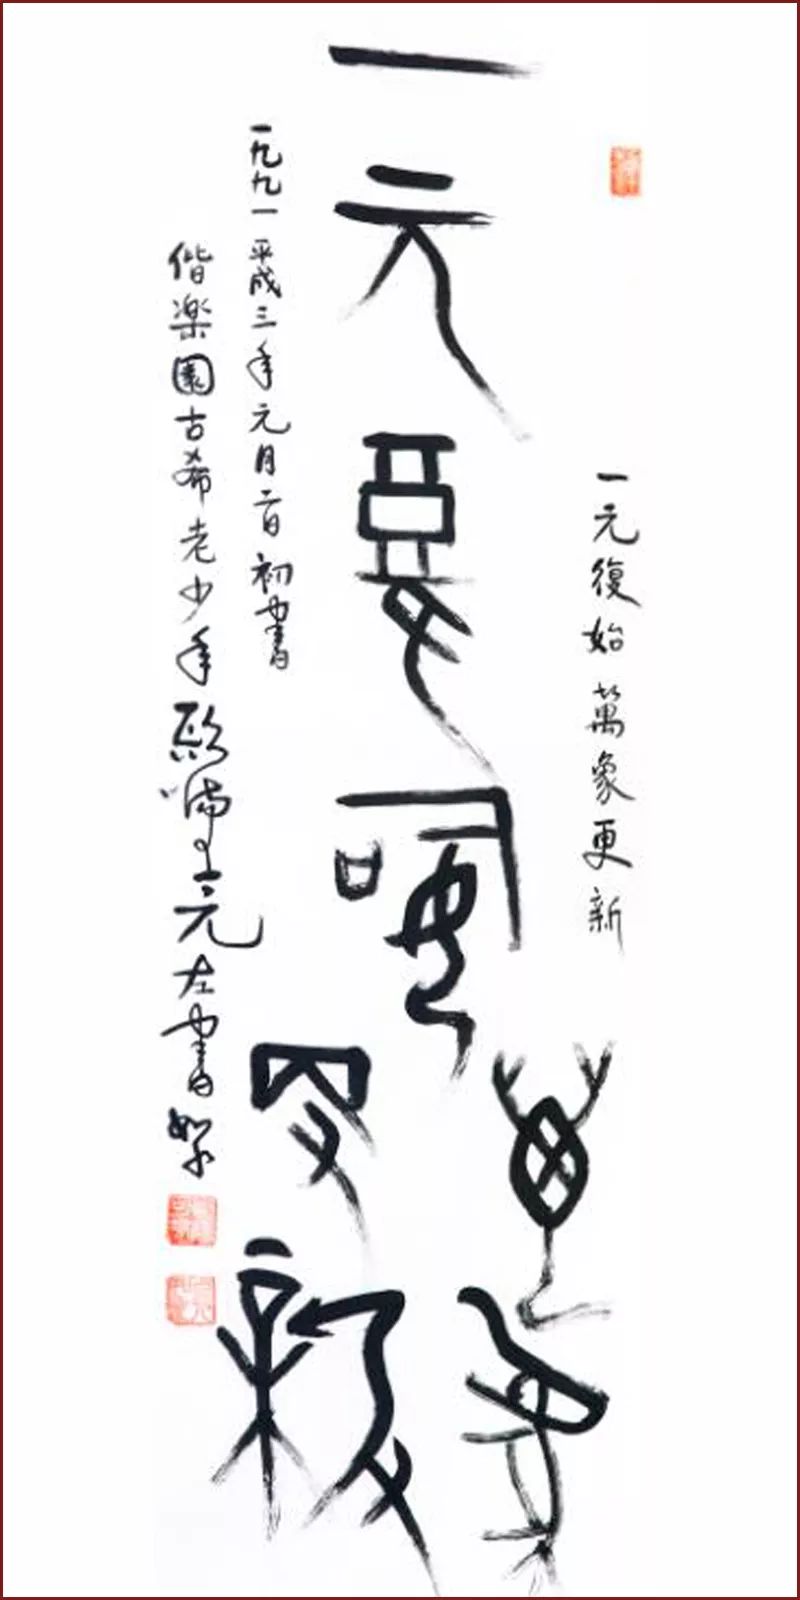 一元復始 萬象更新
一元復始
萬象
更新
一九九一平成三年元月二日初書
偕楽園古希老少年欧陽可亮左書